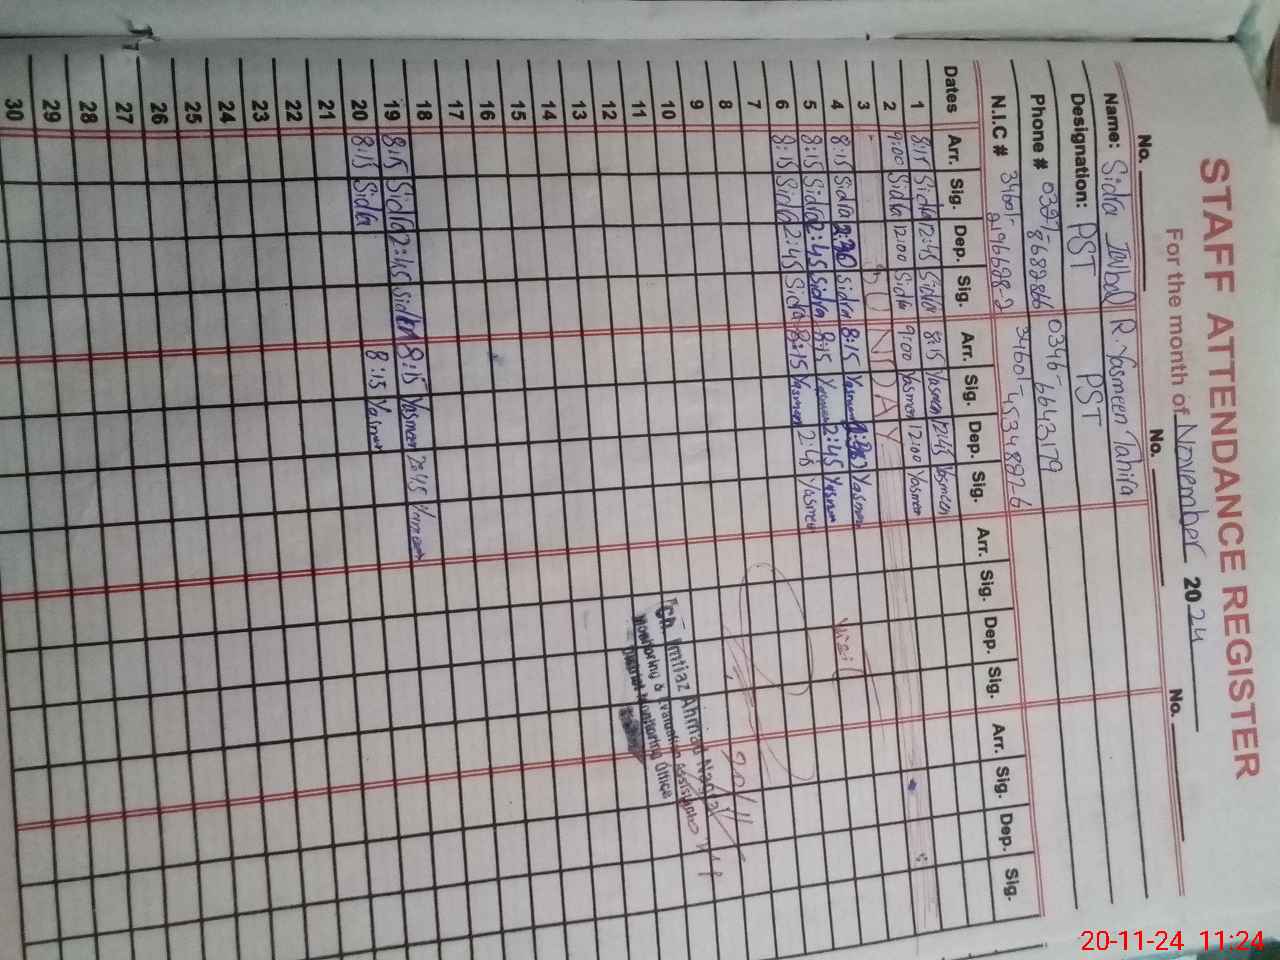 STAFF ATTENDANCE REGISTER
For the month of November 2024
No. No. No.
Name: Sidra Iqbal R. Yasmeen Tahira
Designation: PST PST
Phone # 0346-6643179
N.I.C #
Dates Arr. Sig. Dep. Sig. Arr. Sig. Dep. Sig. Arr. Sig. Dep. Sig. Arr. Sig. Dep. Sig.
1 8:15 Sidra 12:45 Sidra 8:15 Yasmeen 12:45 Yasmeen
2 9:00 Sidra 12:00 Sidra 9:00 Yasmeen 12:00 Yasmeen
3 SUNDAY
4 8:15 Sidra Sidra 8:15 Yasmeen Yasmeen
5 8:15 Sidra 2:45 Sidra 8:15 Yasmeen 2:45 Yasmeen
6 8:15 Sidra 2:45 Sidra 8:15 Yasmeen 2:45 Yasmeen
7
8
9
10
11
12
13
14
15
16
17
18
19 8:15 Sidra 2:45 Sidra 8:15 Yasmeen 2:45
20 8:15 Sidra 8:15 Yasmeen
21
22
23
24
25
26
27
28
29
30
Visit
Ch. Imtiaz Ahmad
Monitoring & Evaluation Assistant
District Monitoring Office
20-11-24 11:24